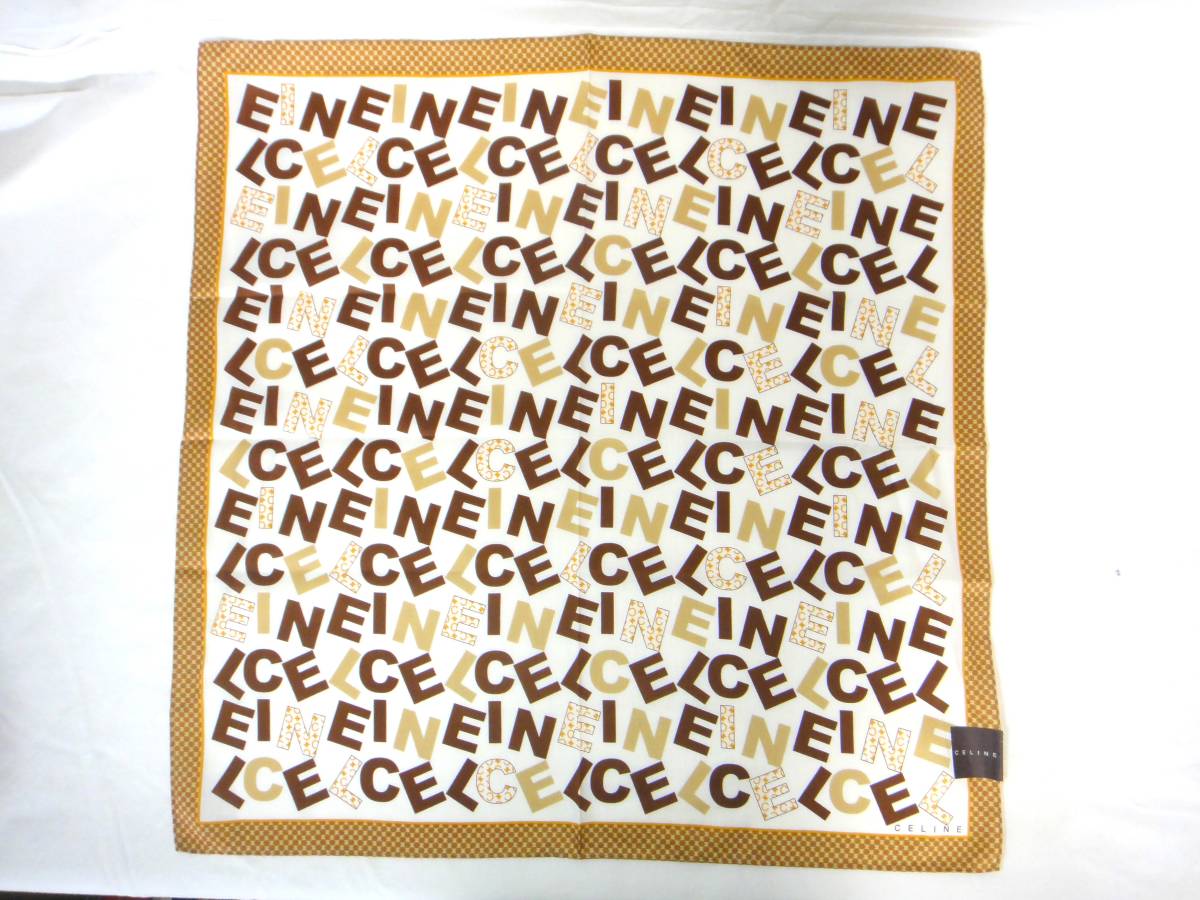 EINEINEINEINEINEINE
LCELCELCELCELCELCEL
EINEINEINEINEINEINE
LCELCELCELCELCELCEL
EINEINEINEINEINEINE
LCELCELCELCELCELCEL
EINEINEINEINEINEINE
LCELCELCELCELCELCEL
EINEINEINEINEINEINE
LCELCELCELCELCELCEL
EINEINEINEINEINEINE
LCELCELCELCELCELCEL
EINEINEINEINEINEINE
CELINE
LCELCELCELCELCELCEL
CELINE